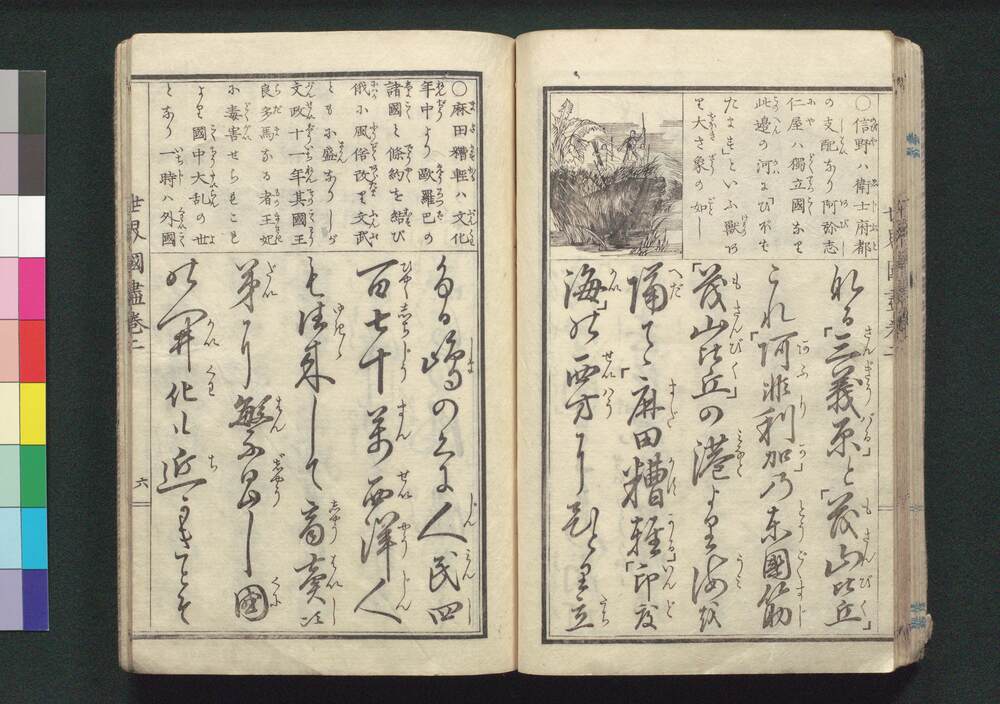 ○信野ハ衛士府都
の支配なり阿弥志
仁屋ハ獨立國なり
此辺の河に「ひぽぽ
たます」といふ獣あ
り大さ象の如し
なる「三義原」と「茂山比丘」
これ「阿非利加」の東國筋
「茂山比丘」の港より海を
隔て「麻田糟軽」「印度
海」の西方にひとり立
世界國盡巻二
○麻田糟軽ハ文化
年中より歐羅巴の
諸國と條約を結び
俄に風俗改り文武
とも小盛なりしが
文政十一年其國王
良多馬なる者王妃
に毒害せられこと
より國中大乱の世
となり一時ハ外國
なる嶋のくに人民四
百七十萬西洋人
も往来して商賣次
第に繁昌し國
の開化に近
世界國盡巻二
六